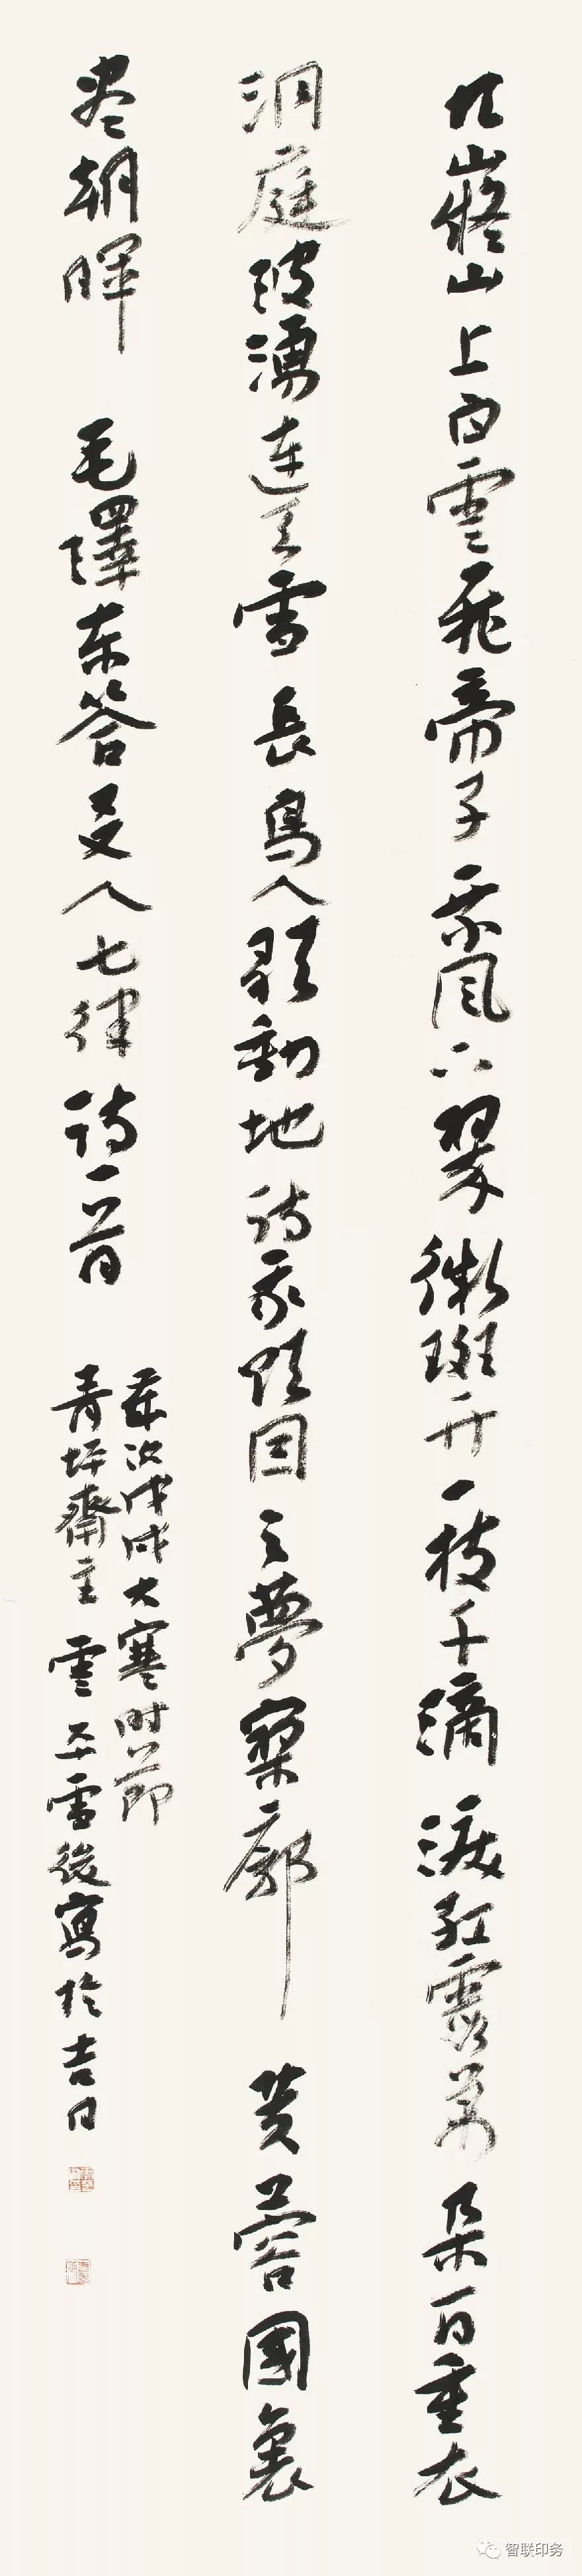 九嶷山上白雲飛帝子乘風下翠微斑竹一枝千滴淚紅霞萬朵百重衣
洞庭波湧連天雪長島人歌動地詩我欲因之夢寥廓芙蓉國裏
盡朝暉 毛澤东答友人七律詩一首
歲次戊戌大寒时節
青坪齋主雲平雪後寫於吉日
智联印务